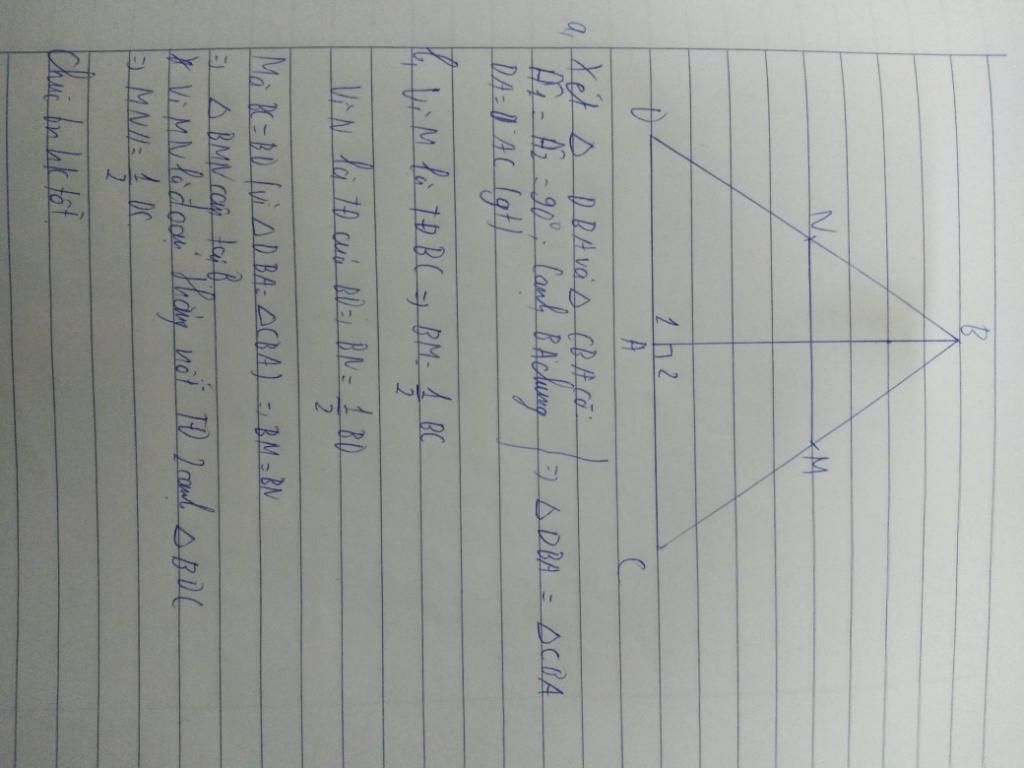 B
N
M
D
1
2
A
C
a,
Xét Δ DBA và Δ CBA có
Â1 = Â2 = 90°; Cạnh BA chung
DA = AC (gt)
⇒ Δ DBA = Δ CBA
b, Vì M là TĐ BC ⇒ BM = 1/2 BC
Vì N là TĐ của BD ⇒ BN = 1/2 BD
Mà BC = BD (vì Δ DBA = Δ CBA) ⇒ BM = BN
⇒ Δ BMN cân tại B
* Vì MN là đoạn thẳng nối TĐ 2 cạnh Δ BDC
⇒ MN = 1/2 DC
Chúc bn hk tốt